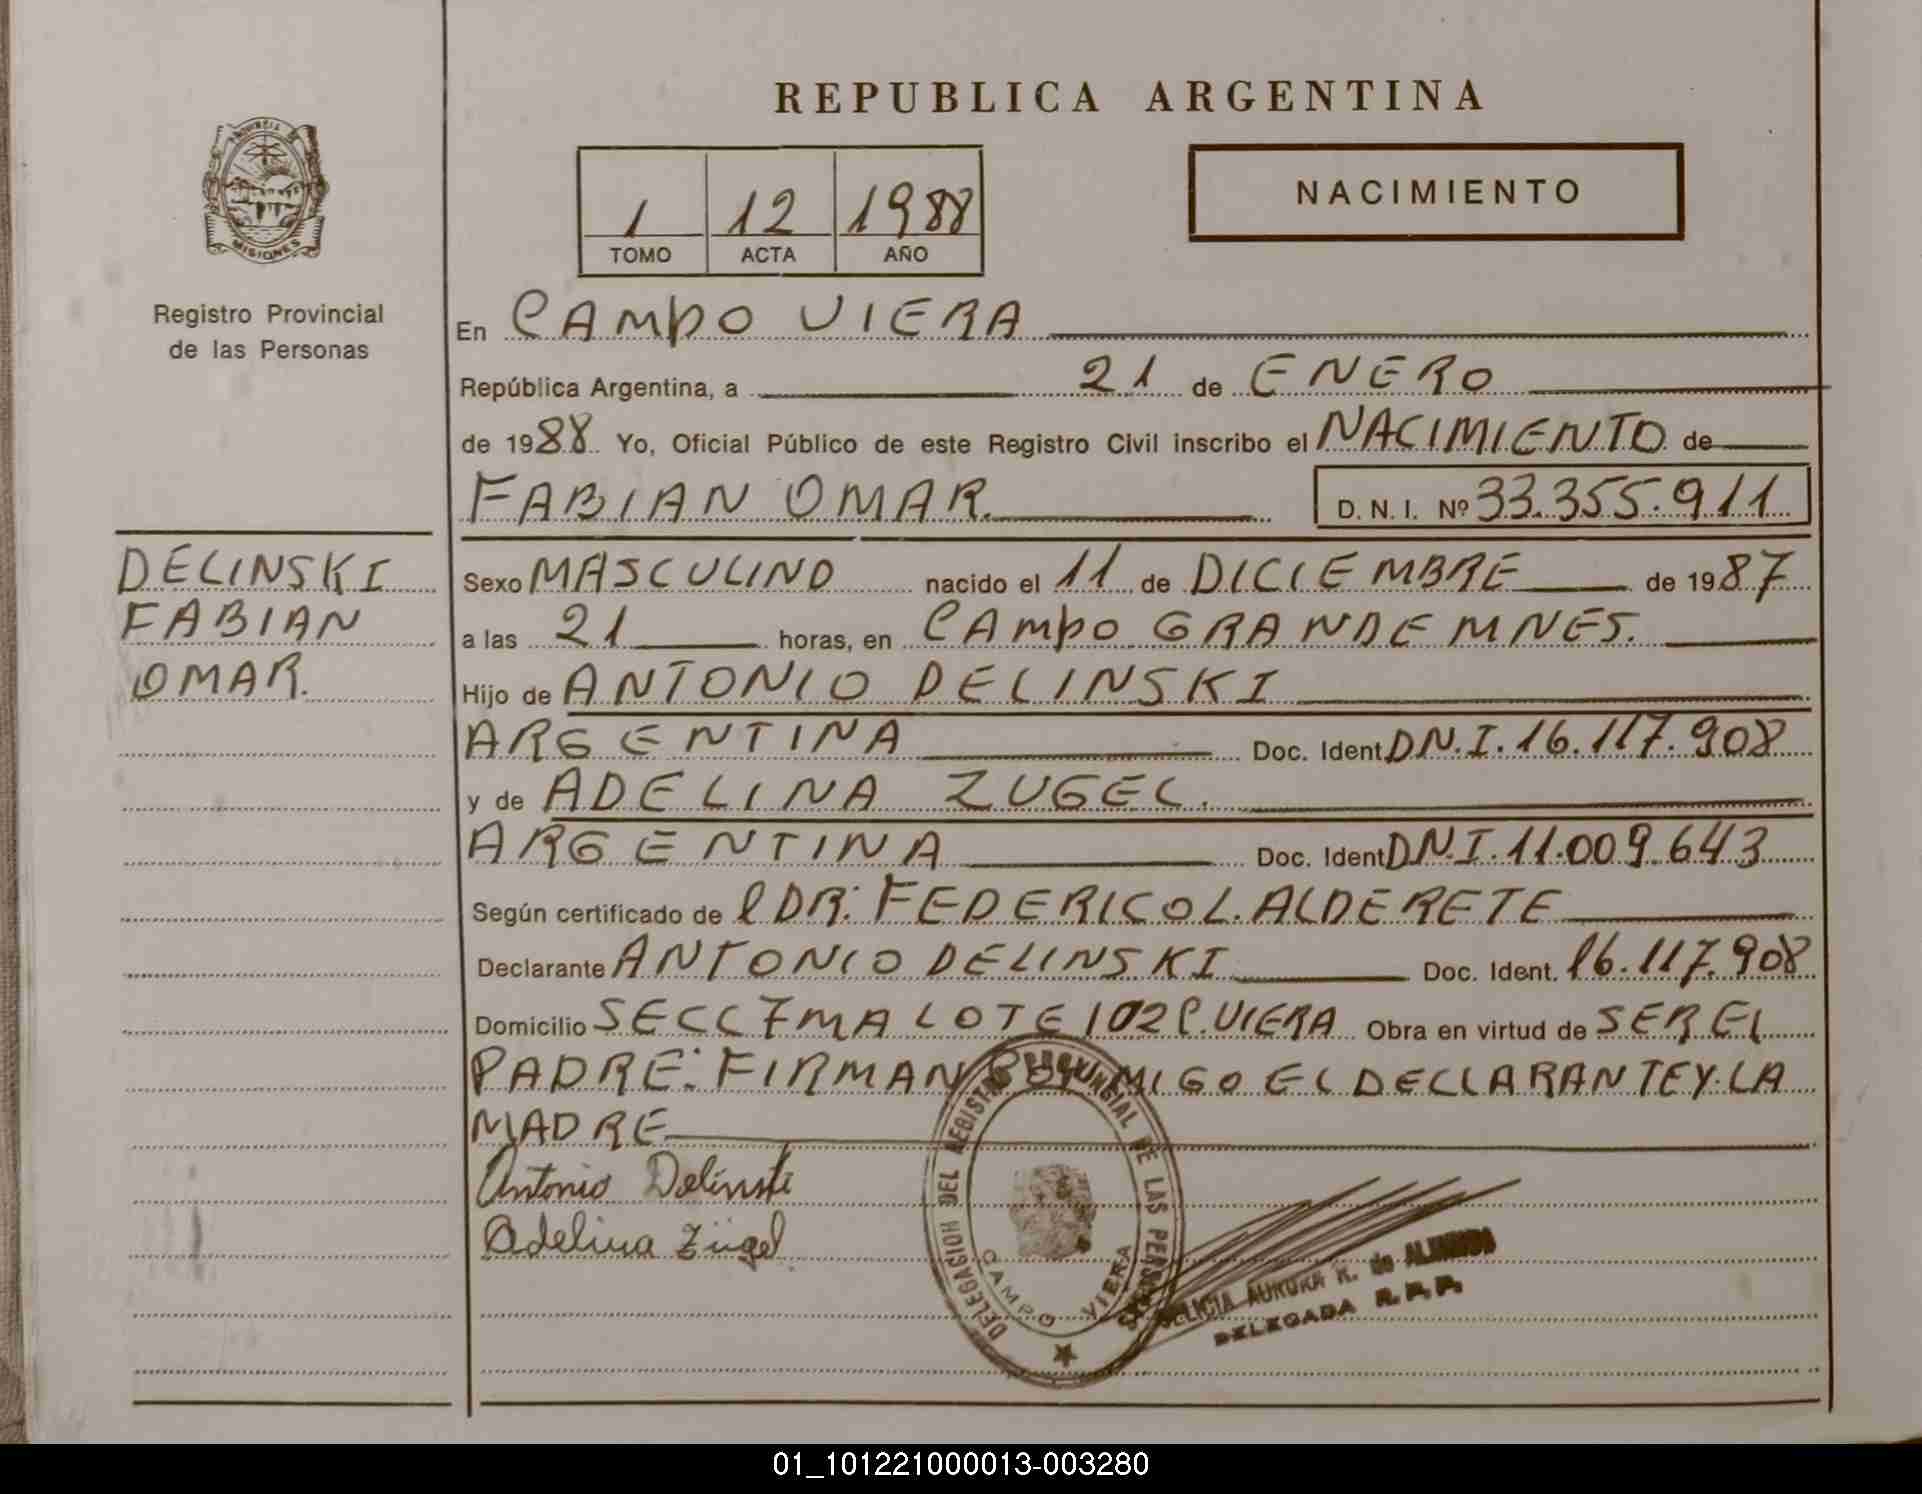 REPUBLICA ARGENTINA
PROVINCIA DE
MISIONES
Registro Provincial
de las Personas
1 12 1988
TOMO ACTA AÑO
NACIMIENTO
En CAMPO VIERA
República Argentina, a 21 de ENERO
de 1988 Yo, Oficial Público de este Registro Civil inscribo el NACIMIENTO de
FABIAN OMAR. D. N. I. Nº 33.355.911
DELINSKI
FABIAN
OMAR.
Sexo MASCULINO nacido el 11 de DICIEMBRE de 1987
a las 21 horas, en CAMPO GRANDE MNES.
Hijo de ANTONIO DELINSKI
ARGENTINA Doc. Ident. D.N.I. 16.117.908
y de ADELINA ZUGEL.
ARGENTINA Doc. Ident D.N.I. 11.009.643
Según certificado de l DR: FEDERICO L. ALDERETE
Declarante ANTONIO DELINSKI Doc. Ident. 16.117.908
Domicilio SECC 7MA LOTE 102 C. VIERA Obra en virtud de SER EL
PADRE: FIRMAN CONMIGO EL DECLARANTE Y LA
MADRE
Antonio Delinski
Adelina Zügel
DELEGACION DEL REGISTRO PROVINCIAL DE LAS PERSONAS
CAMPO VIERA
AURORA K. de
DELEGADA R.P.P.
01_101221000013-003280